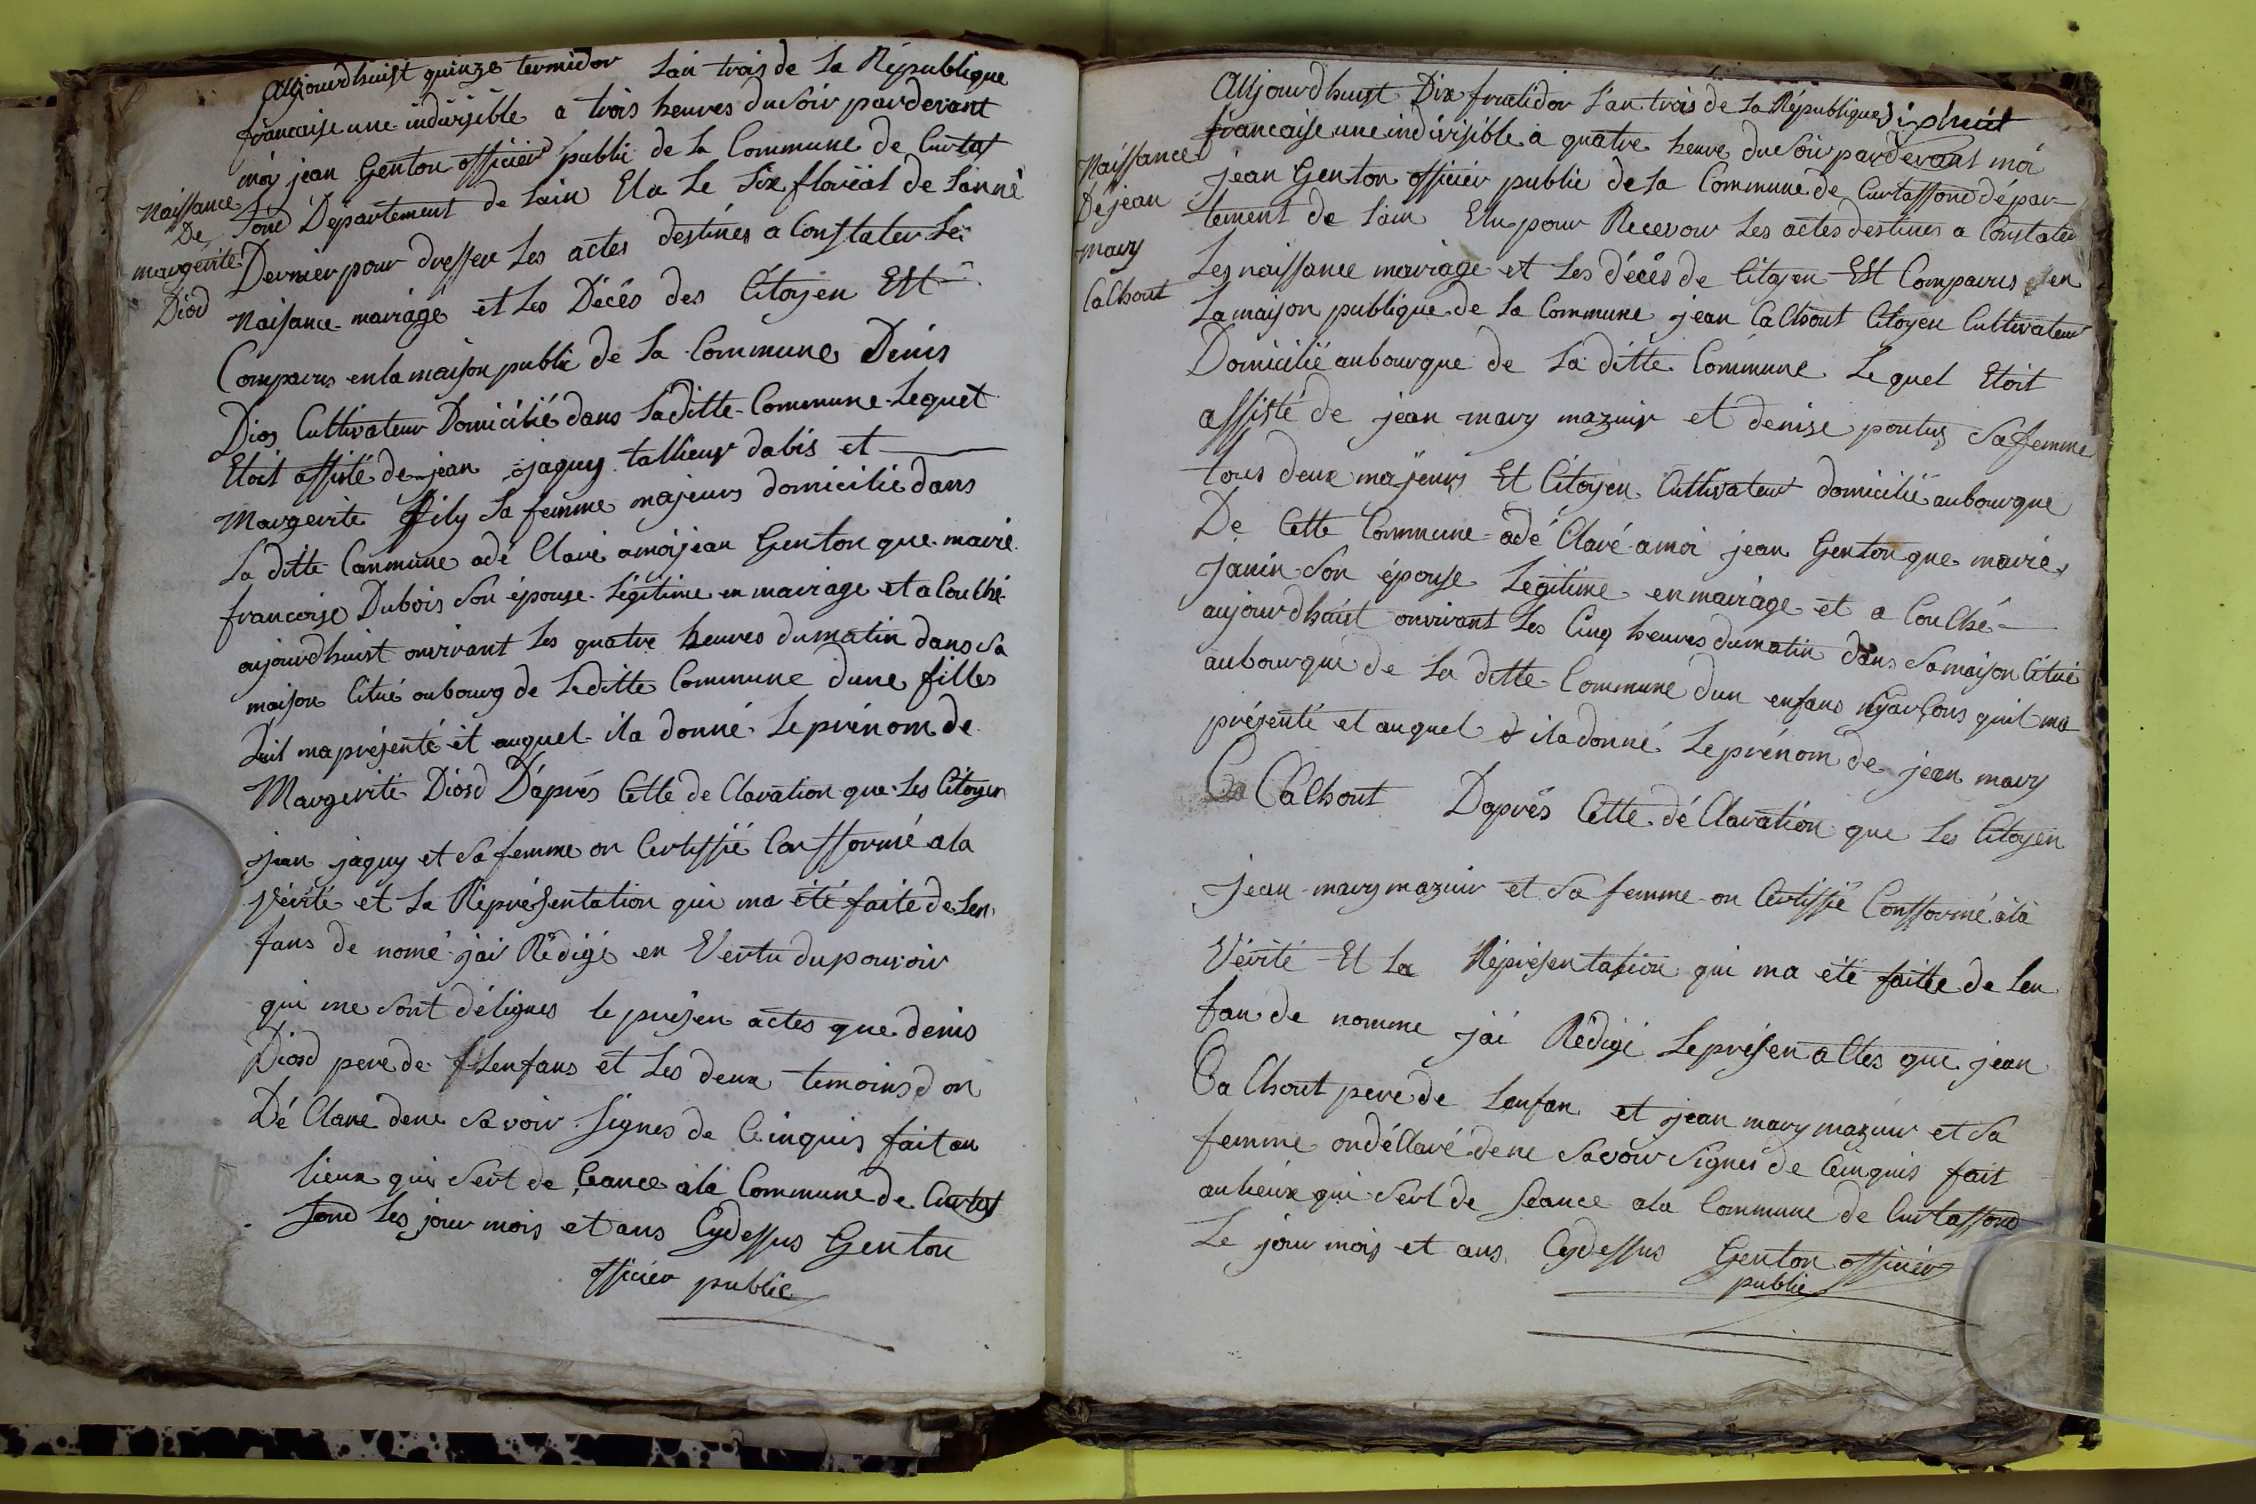 Aujourdhuist quinze termidor Lan trois de La Republique
francaise une indivisible a trois heures du Soir pardevant
moy jean Genton officier public de La Commune de Curtas
fond Département de Lain Elu Le Six floréal de Lanné
Naissance
De
margerite
Diod
Dernier pour dresser Les actes destinés a Constater Le
Naisance mariage et Les Décés des Citoyen Est
Comparus en la maison public de La Commune Denis
Dios Cultivateur Domicilié dans La ditte Commune Lequel
Etoit assisté de jean jaquy tallieur dabis et
Margerite fily Sa femme majeurs domicilié dans
La ditte Commune adé Claré a moi jean Genton que marie
francoise Dubois Son épouse Légitime en mariage et a Couché
aujourdhuist onvirant Les quatre heures du matin dans Sa
maison Citué au bourg de Leditte Commune dune filles
Quil ma présenté et auquel il a donné Le prénom de
Margerite Diosd D'aprés Cette de Claration que Les Citoyen
jean jaquy et Sa femme on Certiffié Confformé a la
Vérité et La Représentation qui ma été faite de Len
fans de nomé jai Rédigé en Vertu du pouvoir
qui me Sont délignes le présen actes que denis
Diosd pere de Lenfans et Les deux temoins don
Dé Clare dene Savoir Signes de Ceinquis fait au
lieux qui Sert de Ceance a la Commune de Curtas
fond Les jour mois et ans Cydessus Genton
officier public
Aujourdhuist Dix fructidor L'an trois de La République diphuit
francaise une indivisible a quatre heure du Soir pardevant moi
Naissance
De jean
mary
Calhout
jean Genton officier public de La Commune de Curtassond dépar
tement de Lain Elu pour Recevoir Les actes destines a Constater
Les naissance mariage et Les décés de Citoyen Est Comparus en
La maison publique de La Commune jean Calhout Citoyen Cultivateur
Domicilié au bourgue de La ditte Commune Le quel Etoit
assisté de jean mary mazuir et denise pontus Sa femme
tous deux majeurs Et Citoyen Cultivateur domicilié au bourgue
De Cette Commune adé Claré a moi jean Genton que marie
Janin Son épouse Legitime en mariage et a Couché
aujourdhuist onvirant Les Cinq heures du matin dans Sa maison Citué
au bourgue de La ditte Commune dun enfans Garcons quil ma
présenté et auquel il a donné Le prénom de jean mary
Calhout Daprés Cette déClaration que Les Citoyen
jean mary mazuir et Sa femme on Certiffié Confformé a la
Vérité Et La Représentation qui ma été faitte de Len
fan de nomme jai Rédigé Le présen actes que jean
Calhout pere de Lenfan et jean mary mazuir et Sa
femme on déClaré de ne Savoir Signes de Ceinquis fait
au lieux qui Sert de Seance a la Commune de Curtassond
Le jour mois et ans Cydessus Genton officier
public